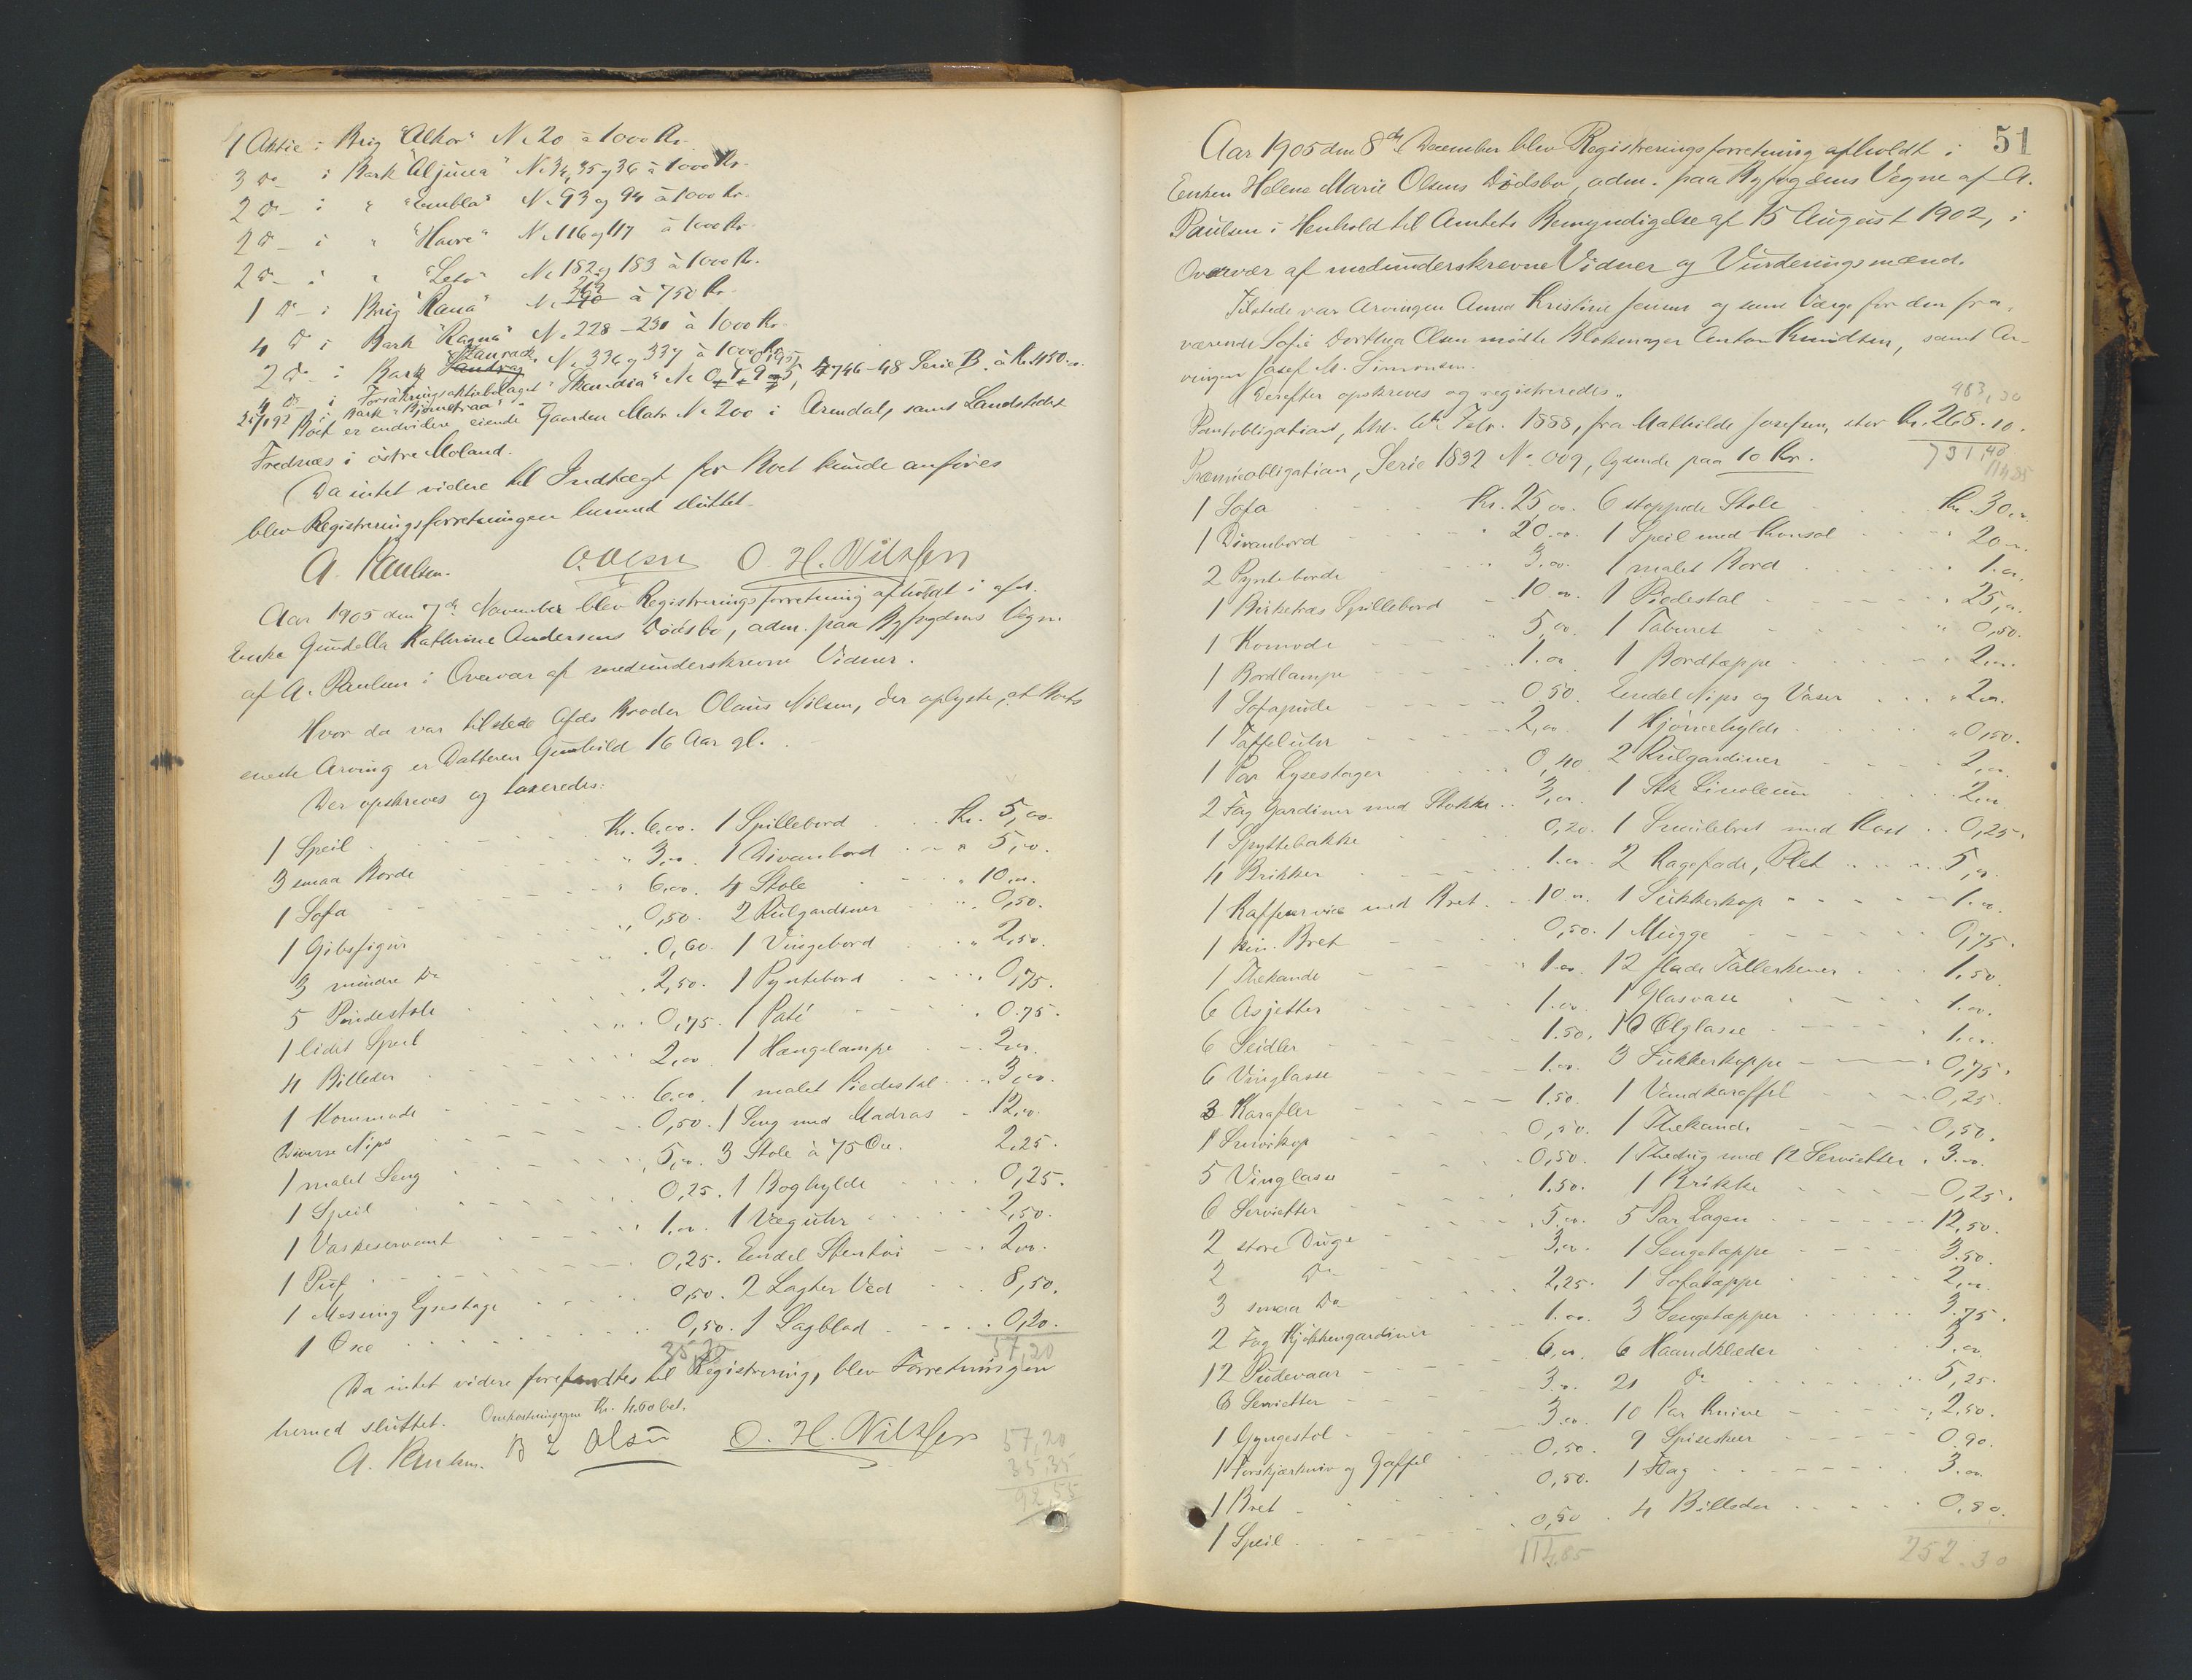 1 Aktie i Brig "Alkor" No 20 à 1000 Kr.
3 Do i Bark "Aljuca" No 34, 35 og 36 à 1000 Kr.
2 Do i " "Embla" No 93 og 94 à 1000 Kr.
2 Do i " "Havre" No 116 og 117 à 1000 Kr.
2 Do i " "Leto" No 182 og 183 à 1000 Kr.
1 Do i Brig "Rana" No 290 à 750 Kr.
4 Do i Bark "Ragna" No 228 - 230 à 1000 Kr.
2 Do i Bark No 336 og 337 à 1000 Kr.
4 Do i Forsäkringsaktiebolaget "Skandia" No 746-48 Serie B. à Kr. 450.
i Bark "Bjørnstraa"
Boet er endvidere eiende Gaarden Matr. No 200 i Arendal, samt Landstedet
Frednæs i østre Moland.
Da intet videre til Indtægt for Boet kunde anføres
blev Registreringsforretningen hermed sluttet.
A. Paulsen. O. Olsen O. H. Nilssen
Aar 1905 den 7de November blev Registreringsforretning afholdt i afd.
Enke Gundella Kathrine Andersens Dødsbo, adm. paa Byfogdens Vegne
af A. Paulsen i Overvær af medunderskrevne Vidner.
Hvor da var tilstede Afdes Broder Olaus Nilsen, der oplyste, at Boets
eneste Arving er Datteren Gunhild 16 Aar gl.
Der opskreves og taxeredes:
1 Speil Kr. 6.00. 1 Spillebord Kr. 5,00.
3 smaa Borde " 3,00. 1 Divanbord " 5,00.
1 Sofa " 6,00. 4 Stole " 10,00.
1 Gibsfigur " 0,50. 2 Rulgardiner " 0,50.
3 mindre Do " 0,60. 1 Vingebord " 2,50.
5 Pindestole " 2,50. 1 Pyntebord " 0,75.
1 lidet Speil " 0,75. 1 Paté " 0.75.
4 Billeder " 2,00 1 Hængelampe 2,00.
1 Kommode " 6.00. 1 malet Piedestal 3,00.
Diverse Nips " 0,50. 1 Seng med Madras 12,00.
1 malet Seng " 5,00. 3 Stole à 75 Øre. 2,25.
1 Speil 0,25. 1 Boghylde 0,25.
1 Vaskeservant " 1.00. 1 Væguhr 2,50.
1 Puf 0,25. Endel Stentøi 2,00.
1 Messing Lysestage 0,50. 2 Lagter Ved 8,50.
1 Øse 0,50. 1 Sagblad 0,20.
35,35 57,20
Da intet videre forefandtes til Registrering, blev Forretningen
hermed sluttet. Omkostningerne Kr. 4.60 bet.
A. Paulsen. B L Olsen O. H. Nilssen
57,20
35,35
92,55
51
Aar 1905 den 8de December blev Registreringsforretning afholdt i
Enken Helene Marie Olsens Dødsbo, adm. paa Byfogdens Vegne af A.
Paulsen i Henhold til Amtets Bemyndigelse af 15 August 1902, i
Overvær af medunderskrevne Vidner og Vurderingsmænd.
Tilstede var Arvingen Anna Kristine Jensen og som Værge for den fra-
værende Sofie Dorthea Olsen mødte Blokmager Anton Knudtsen, samt Ar-
vingen Josef M. Simonsen.
Derefter opskreves og registreredes.
483,30
Pantobligation, thl. 6te Febr. 1888, fra Mathilde Josefsen, stor Kr. 268.10.
731,40
Præmieobligation, Serie 1832 No. 009, lydende paa 10 Kr.
114.85
1 Sofa Kr. 25,00. 6 stoppede Stole Kr. 30,00.
1 Divanbord " 20.00. 1 Speil med Konsol 20.00.
2 Pynteborde " 3,00. 1 malet Bord 1.00.
1 Birketræs Spillebord 10.00. 1 Piedestal 25,00.
1 Komode 5,00. 1 Taburet 0,50.
1 Bordlampe 1.00 1 Bordtæppe 2,00.
1 Sofapude 0,50. Endel Nips og Vaser 2,00.
1 Taffeluhr 2,00. 1 Hjørnehylde 0,50.
1 Par Lysestager 0,40 2 Rulgardiner 2,00.
2 Fag Gardiner med Stokke 3,00. 1 Stk Linoleum 2,00
1 Spyttebakke 0,20. 1 Smulebret med Kost 0,25.
4 Brikker 1.00. 2 Kagefade, Plet 5,00.
1 Kaffeservice med Bret 10.00. 1 Sukkerkop 1.00.
1 kin. Bret 0,50. 1 Mugge 0,75.
1 Thekande 1.00. 12 flade Tallerkener 1.50.
6 Asjetter 1.00. 1 Glasvase 1.00.
6 Seidler 1.50. 10 Ølglasse 1.00.
6 Vinglasse 1.00. 3 Sukkerkoppe 0,75.
3 Karafler 1.50. 1 Vandkaraffel 0,25.
1 Smørkop 0,50. 1 Thekande 0,50.
5 Vinglasse 0,50. 1 Thedug med 12 Servietter 3.00.
6 Servietter 1.50. 1 Brikke 0,25.
2 store Duge 5.00. 5 Par Lagen 12,50.
2 Do 3,00. 1 Sengetæppe 3.50.
3 smaa Do 2,25. 1 Sofatæppe 2,00
2 Fag Kjøkkengardiner 1.00. 3 Sengetæpper 3.75.
12 Pudevaar 6,00. 6 Haandklæder 3,00.
6 Servietter 3.00. 21 Do 5,25.
1 Gyngestol 3.00. 10 Par Knive 2,50.
1 Forskjærkniv og Gaffel 0,50. 9 Spiseskeer 0.90.
1 Bret 0,50. 1 Flag 3.00.
1 Speil 0,50 4 Billeder 0,80.
114,85 252.30